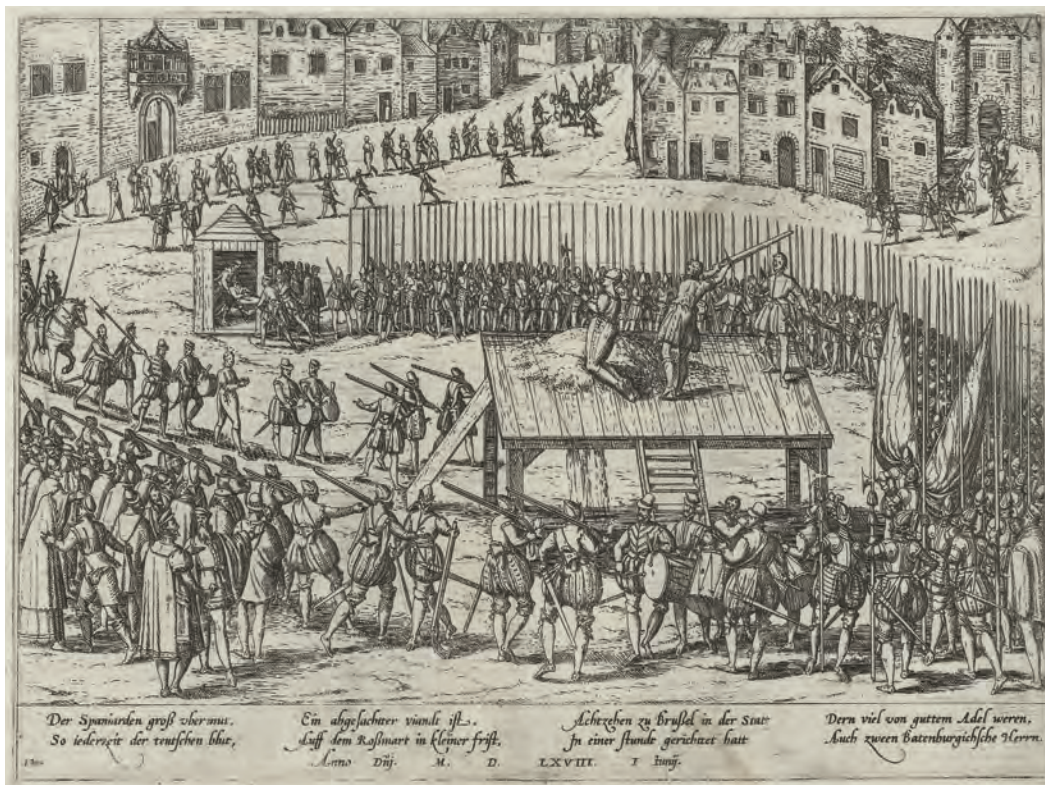 Der Spaniarden groß vbermut,
So iederzeit der teutschen blut,
Ein abgesachter viandt ist,
Auff dem Roßmart in kleiner frist,
Achtzehen zu Brußel in der Statt
In einer stundt gerichtet hatt
Dern viel von guttem Adel weren,
Auch zween Batenburgichsche Herrn.
Anno Dnj. M. D. LXVIII. I Junij.